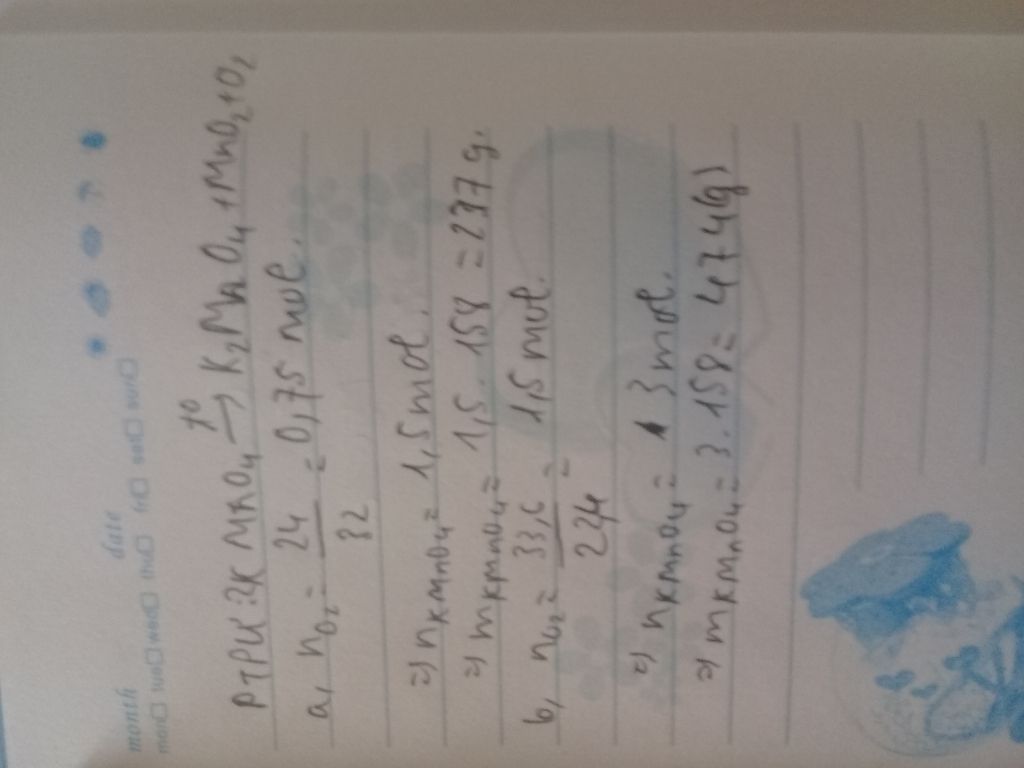 month date
mon□ tue□ wed□ thu□ fri□ sat□ sun□
PTPƯ: 2K MnO4 t° → K2MnO4 + MnO2 + O2
a, nO2 = 24/32 = 0,75 mol.
=) nKMnO4 = 1,5 mol.
=) mKMnO4 = 1,5 . 158 = 237 g.
b, nO2 = 33,6/22,4 = 1,5 mol.
=) nKMnO4 = 3 mol.
=) mKMnO4 = 3.158 = 474(g)